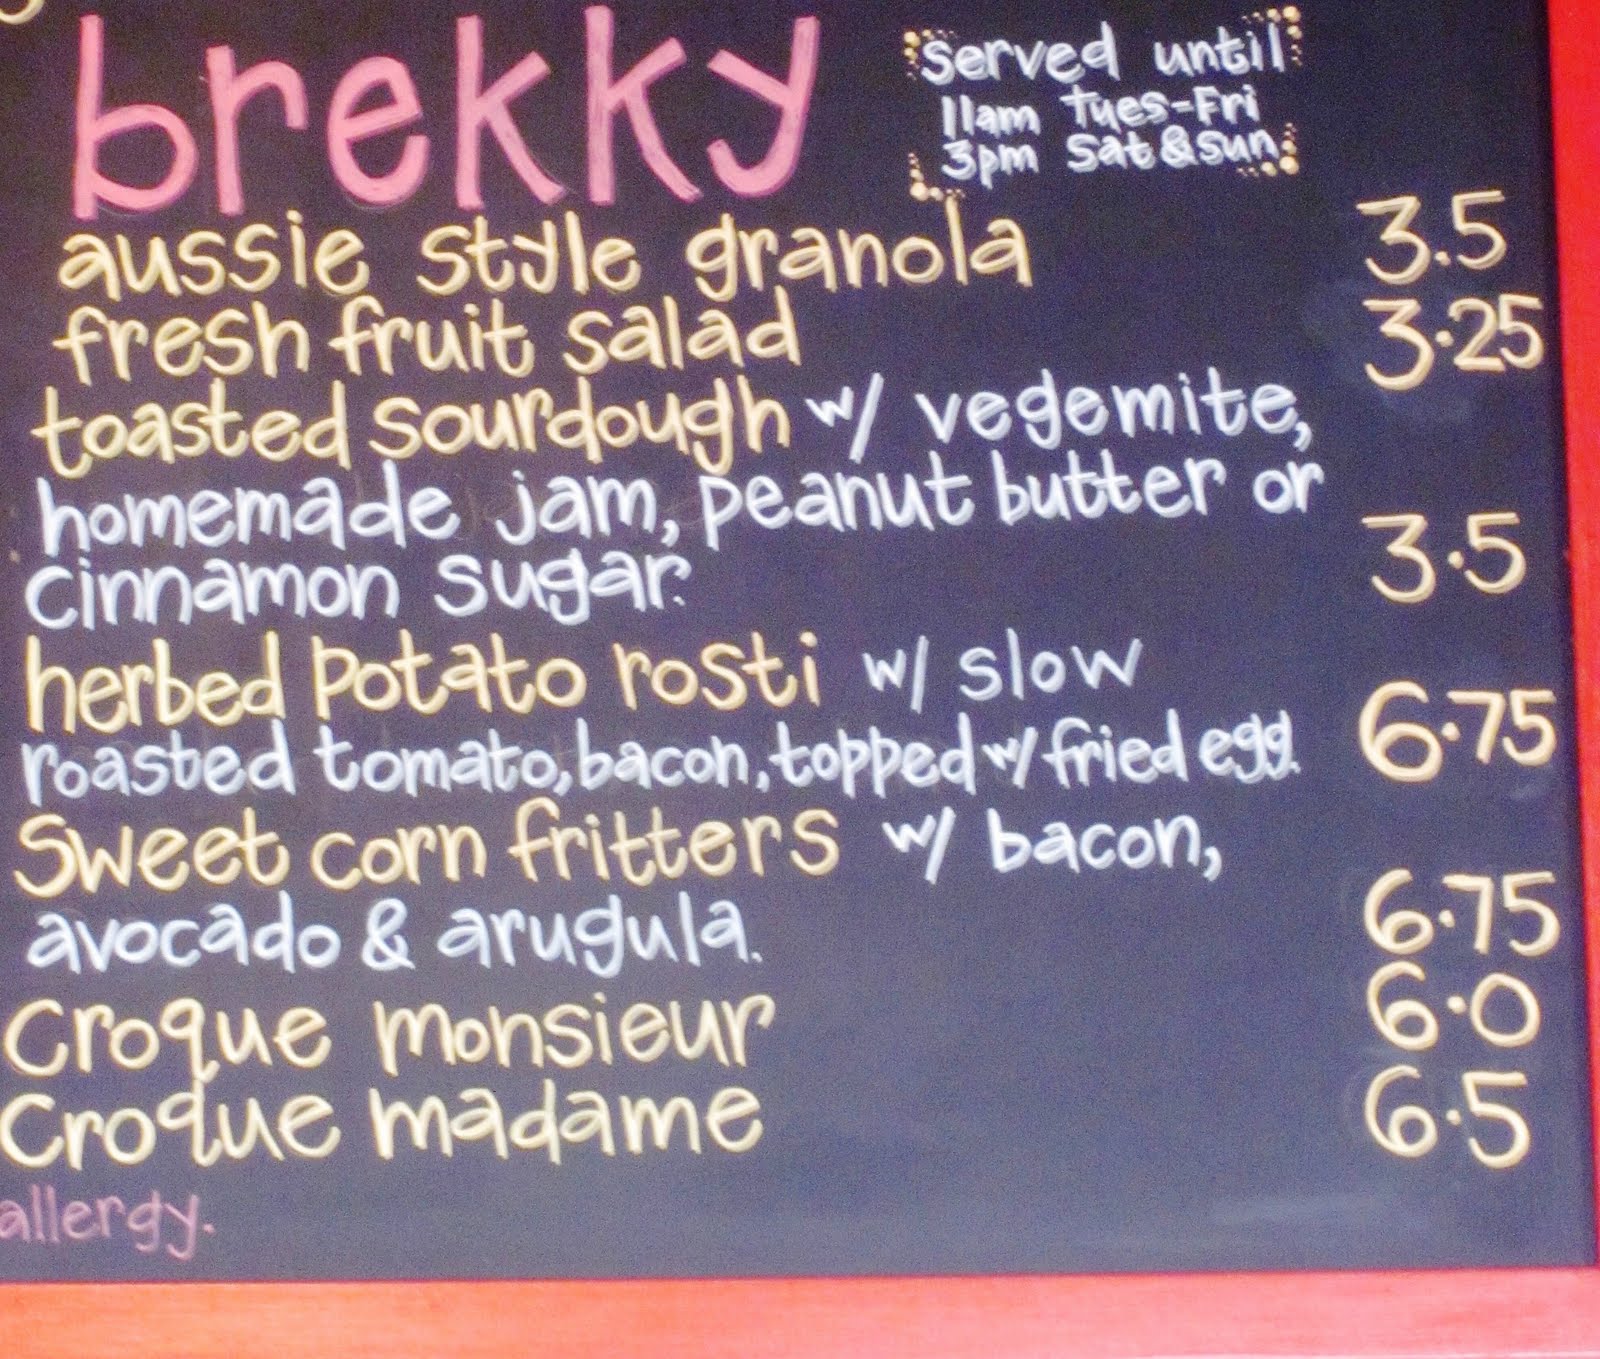 brekky
served until
11am Tues-Fri
3pm Sat & Sun
aussie style granola 3.5
fresh fruit salad 3.25
toasted sourdough w/ vegemite,
homemade jam, peanut butter or
cinnamon sugar. 3.5
herbed potato rosti w/ slow
roasted tomato, bacon, topped w/ fried egg. 6.75
Sweet corn fritters w/ bacon,
avocado & arugula. 6.75
Croque monsieur 6.0
Croque madame 6.5
allergy.